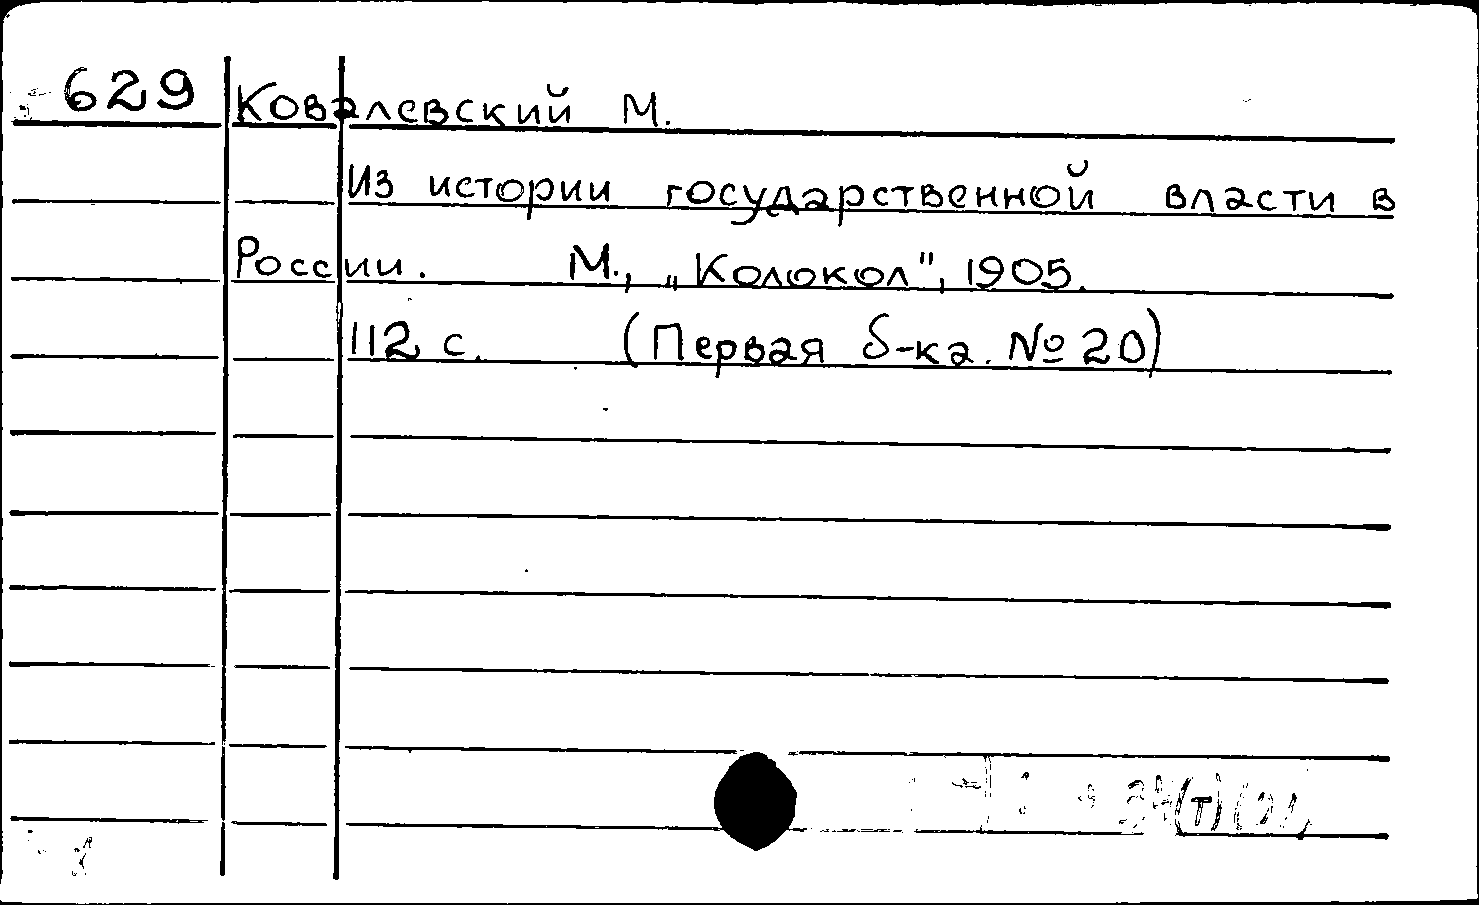 629 Ковалевский М.
Из истории государственной власти в
России. М., „Колокол", 1905.
112 с. (Первая б-ка. № 20)